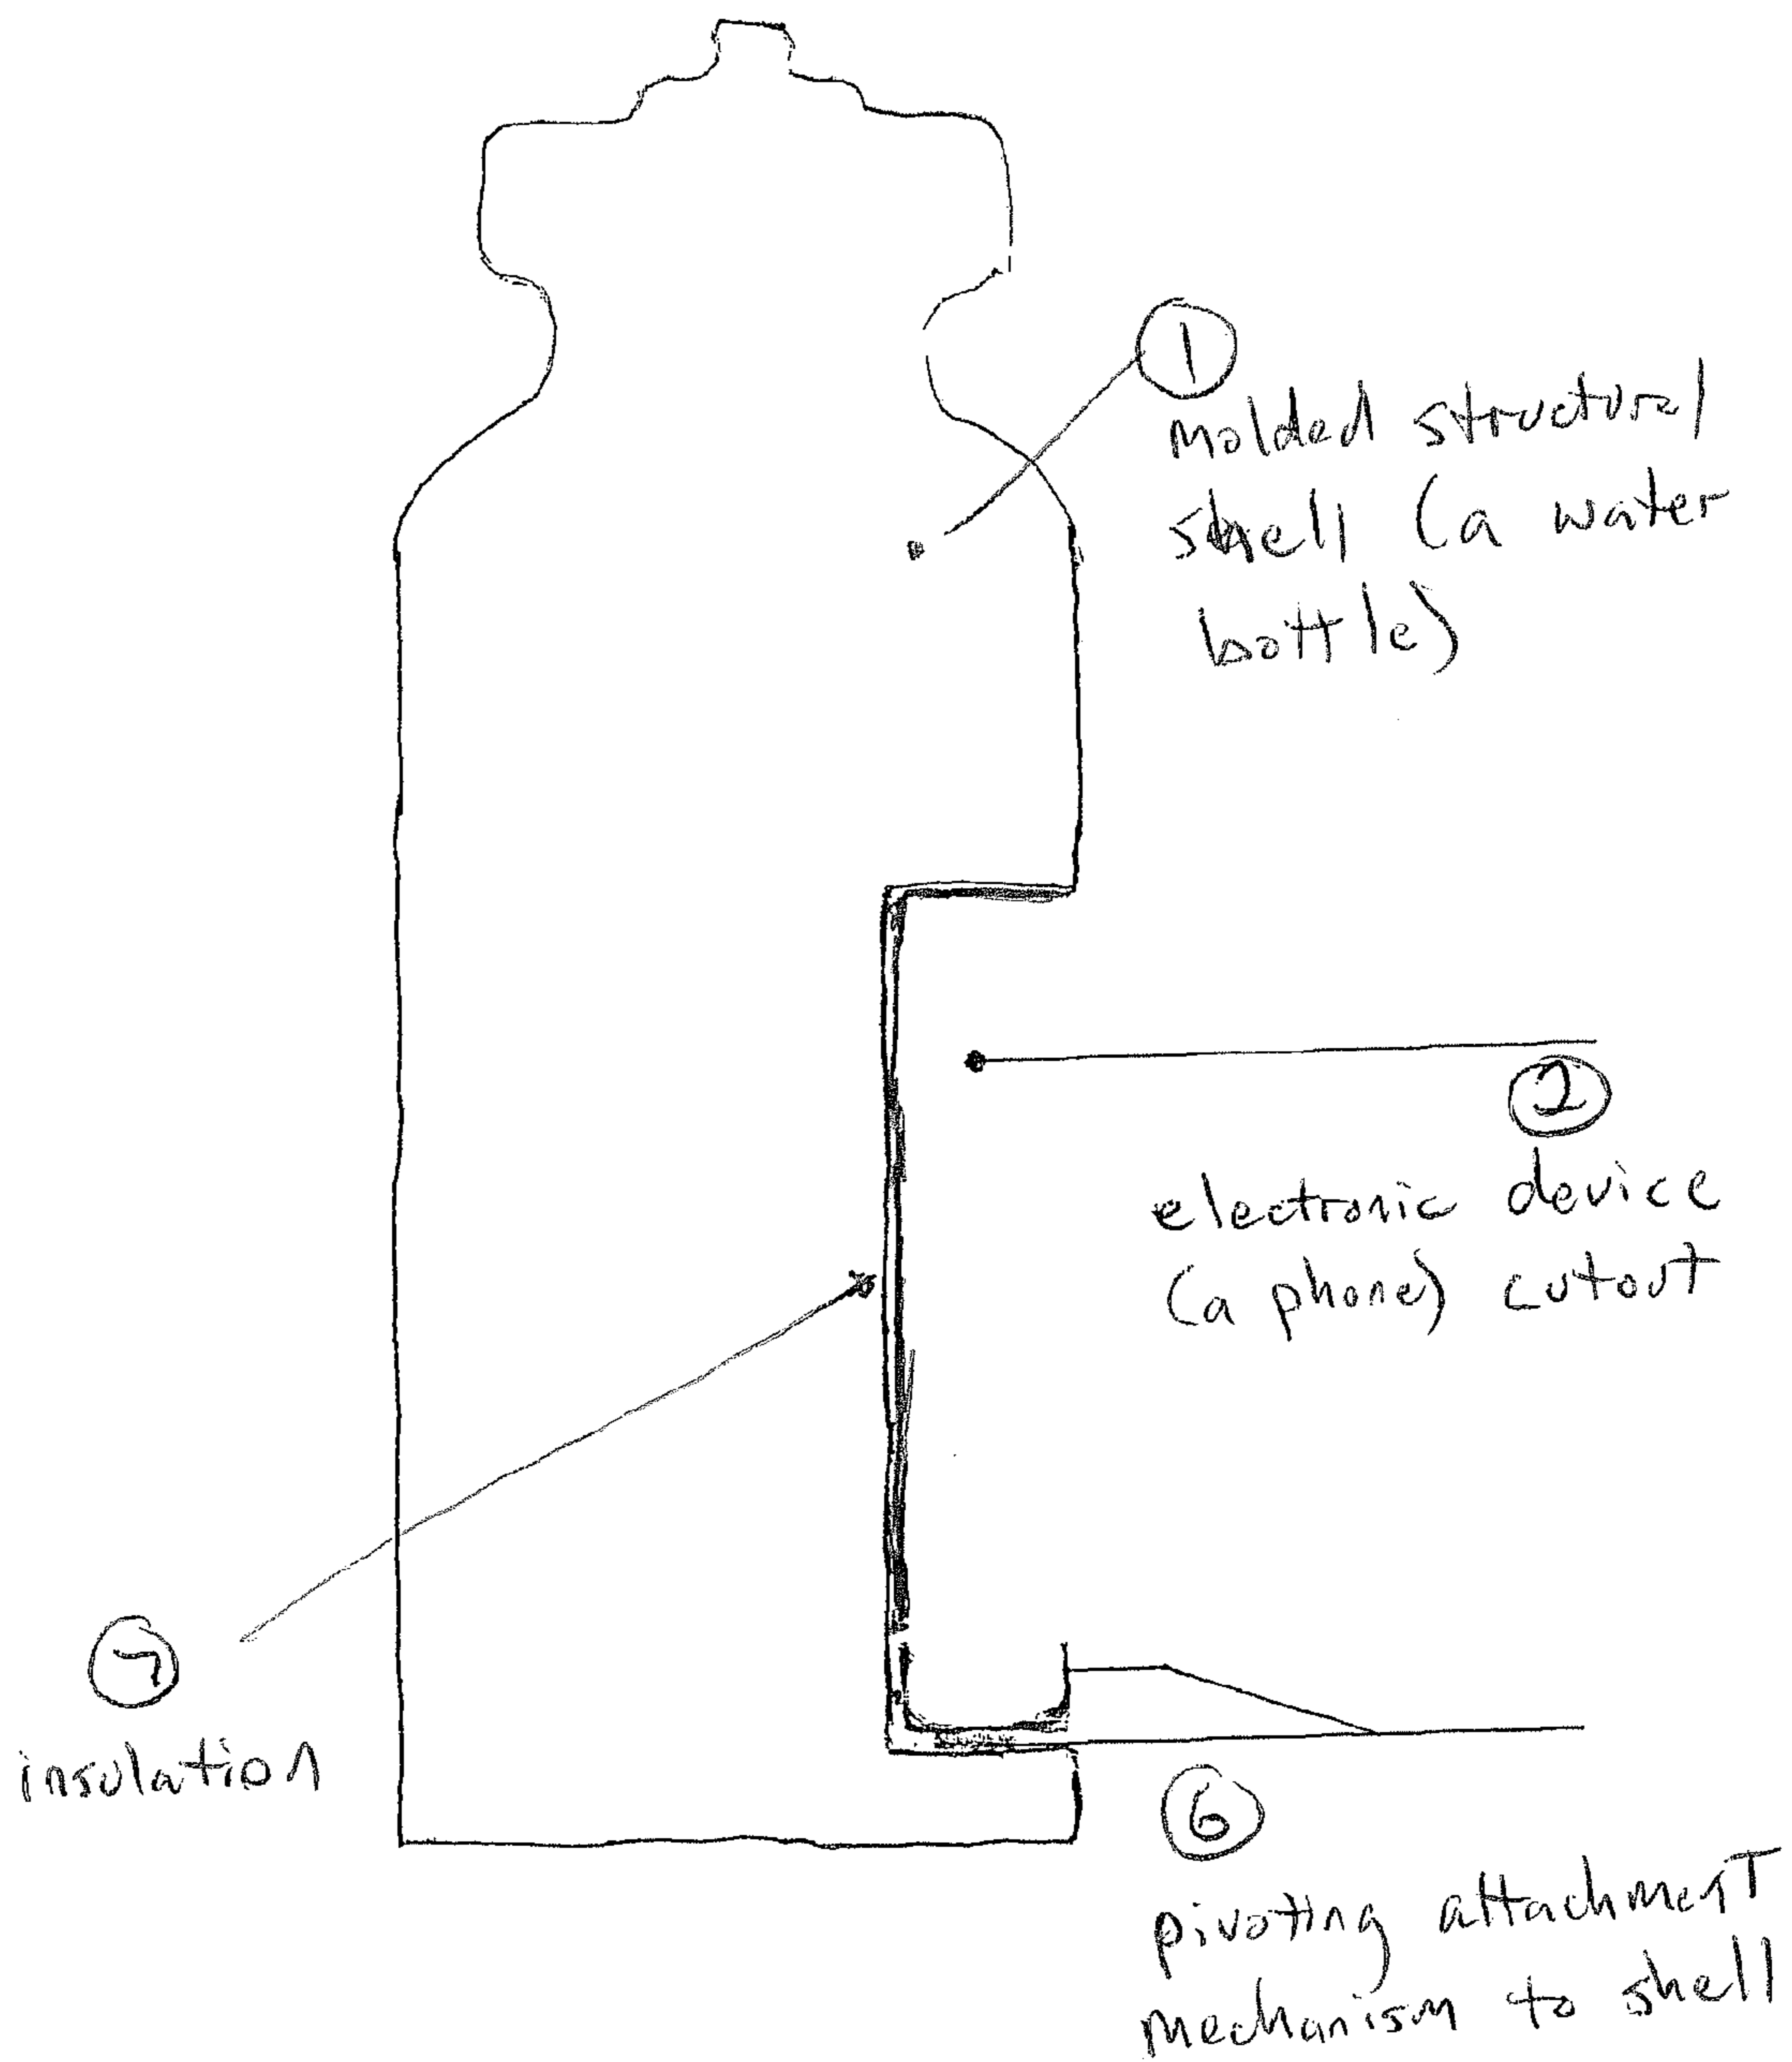 1
Molded structural
shell (a water
bottle)
2
electronic device
(a phone) cutout
7
insulation
6
pivoting attachment
mechanism to shell